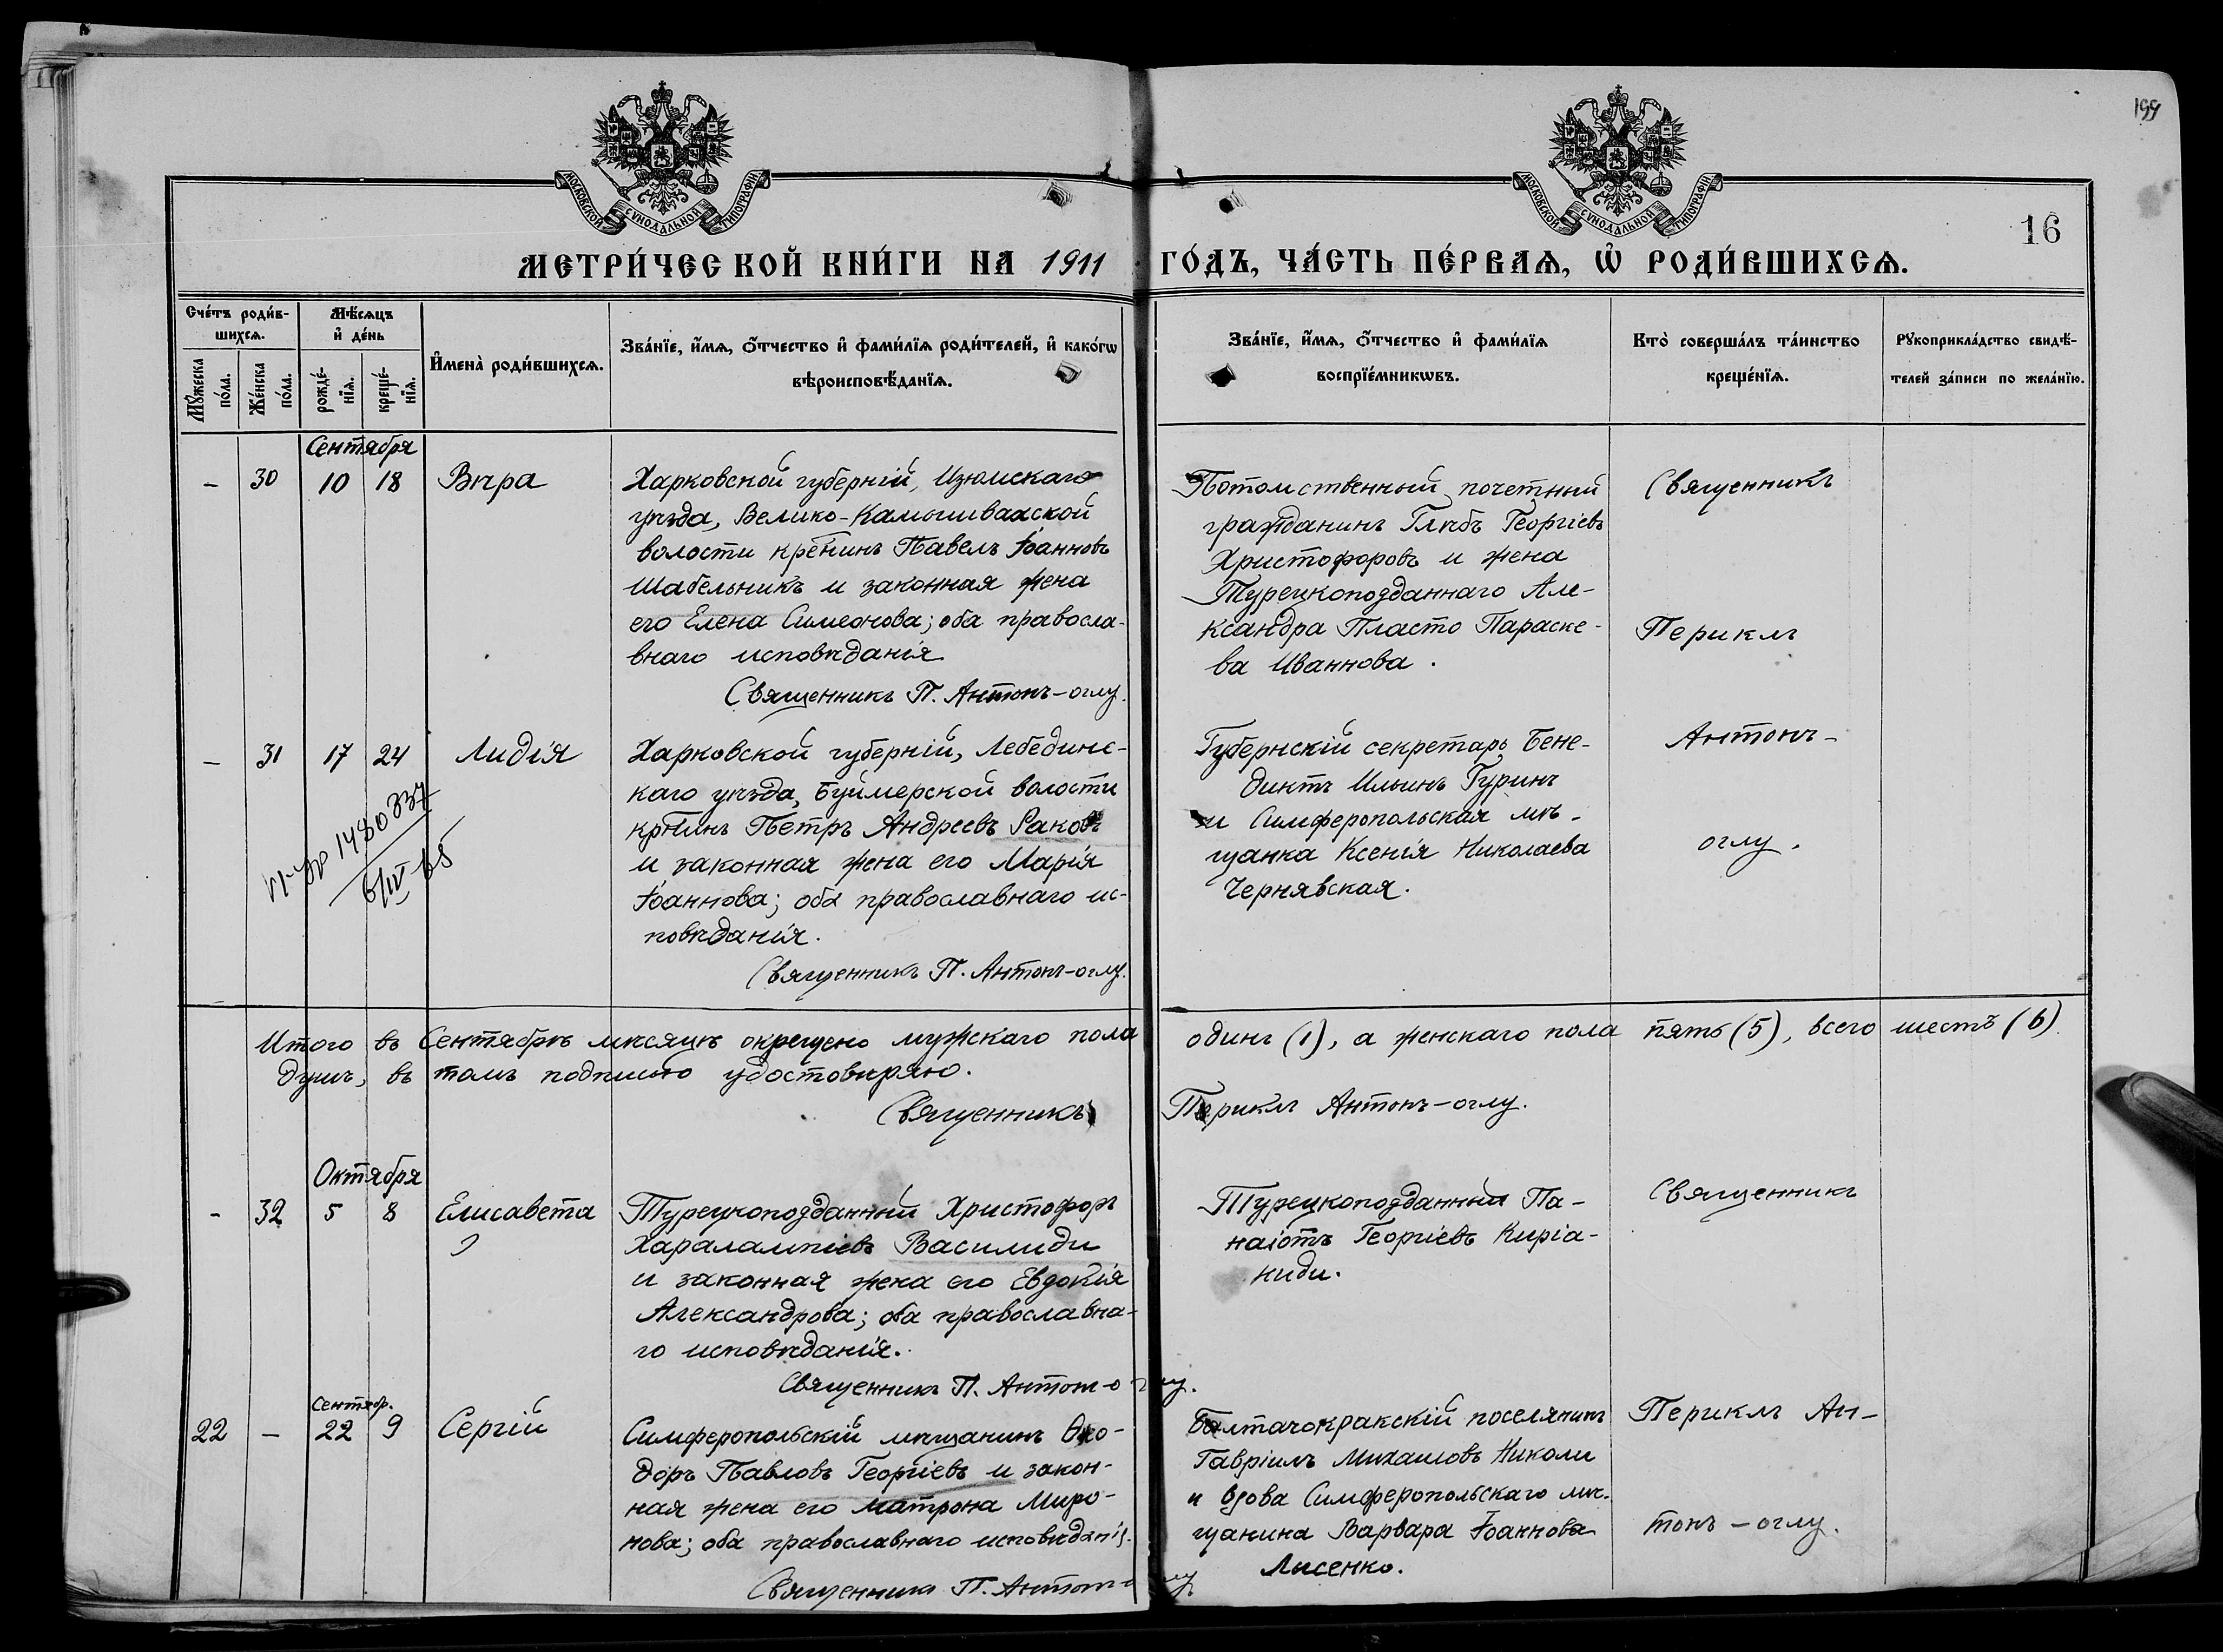 199
16
МОСКОВСКОЙ СѴНОДАЛЬНОЙ ТИПОГРАФІИ
МОСКОВСКОЙ СѴНОДАЛЬНОЙ ТИПОГРАФІИ
МЕТРИ́ЧЕСКОЙ КНИ́ГИ НА 1911 ГО́ДЪ, ЧА́СТЬ ПЕ́РВАѦ, Ѡ҆ РОДИ́ВШИХСѦ.
Сче́тъ роди́в-
шихсѧ.
Мꙋ́жеска
по́ла.
Же́нска
по́ла.
Мѣ́сѧцъ
и҆ де́нь
рожде́-
нїѧ.
креще́-
нїѧ.
И҆мена̀ роди́вшихсѧ.
Зва́нїе, и҆́мѧ, ѻ҆́тчество и҆ фами́лїѧ роди́телей, и҆ како́гѡ
вѣроисповѣ́данїѧ.
Зва́нїе, и҆́мѧ, ѻ҆́тчество и҆ фами́лїѧ
воспрїе́мникѡвъ.
Кто̀ соверша́лъ та́инство
креще́нїѧ.
Рꙋкоприкла́дство свидѣ́-
телей за́писи по жела́нїю.
Сентября
– 30 10 18 Вѣра
Харковской губерніи, Изюмскаго
уѣзда, Велико-Камышивахской
волости кре́нинъ Павелъ Іоанновъ
Шабельникъ и законная жена
его Елена Симеонова; оба правосла-
внаго исповѣданія
Священникъ П. Антонъ-оглу.
Потомственный почетный
гражданинъ Глѣбъ Георгіевъ
Христофоровъ и жена
Турецкоподданнаго Але-
ксандра Пласто Параске-
ва Иваннова.
Священникъ
Периклъ
– 31 17 24 Лидія
1480337
6/IV-65
Харковской губерніи, Лебединс-
каго уѣзда, Буймерской волости
кр-нинъ Петръ Андреевъ Раковъ
и законная жена его Марія
Іоаннова; оба православнаго ис-
повѣданія.
Священникъ П. Антонъ-оглу.
Губернскій секретарь Бене-
диктъ Ильинъ Гуринъ
и Симферопольская мѣ-
щанка Ксенія Николаева
Чернявская.
Антонъ-
оглу.
Итого въ Сентябрѣ мѣсяцѣ окрещено мужскаго пола одинъ (1), а женскаго пола пять (5), всего шесть (6)
душъ, въ томъ подписью удостовѣряю.
Священникъ Периклъ Антонъ-оглу.
Октября
- 32 5 8 Елисавета
Турецкоподданный Христофоръ
Харалампіевъ Василиди
и законная жена его Евдокія
Александрова; оба православна-
го исповѣданія.
Священникъ П. Антонъ-оглу.
Турецкоподданный Па-
наіотъ Георгіевъ Киріа-
ниди.
Священникъ
Сентябр.
22 – 22 9 Сергій
Симферопольскій мѣщанинъ Ѳео-
доръ Павловъ Георгіевъ и закон-
ная жена его Матрона Миро-
нова; оба православнаго исповѣданія.
Священникъ П. Антонъ-оглу
Балтачокракскій поселянинъ
Гавріилъ Михаиловъ Николи
и вдова Симферопольскаго мѣ-
щанина Варвара Іоаннова
Лисенко.
Периклъ Ан-
тонъ-оглу.